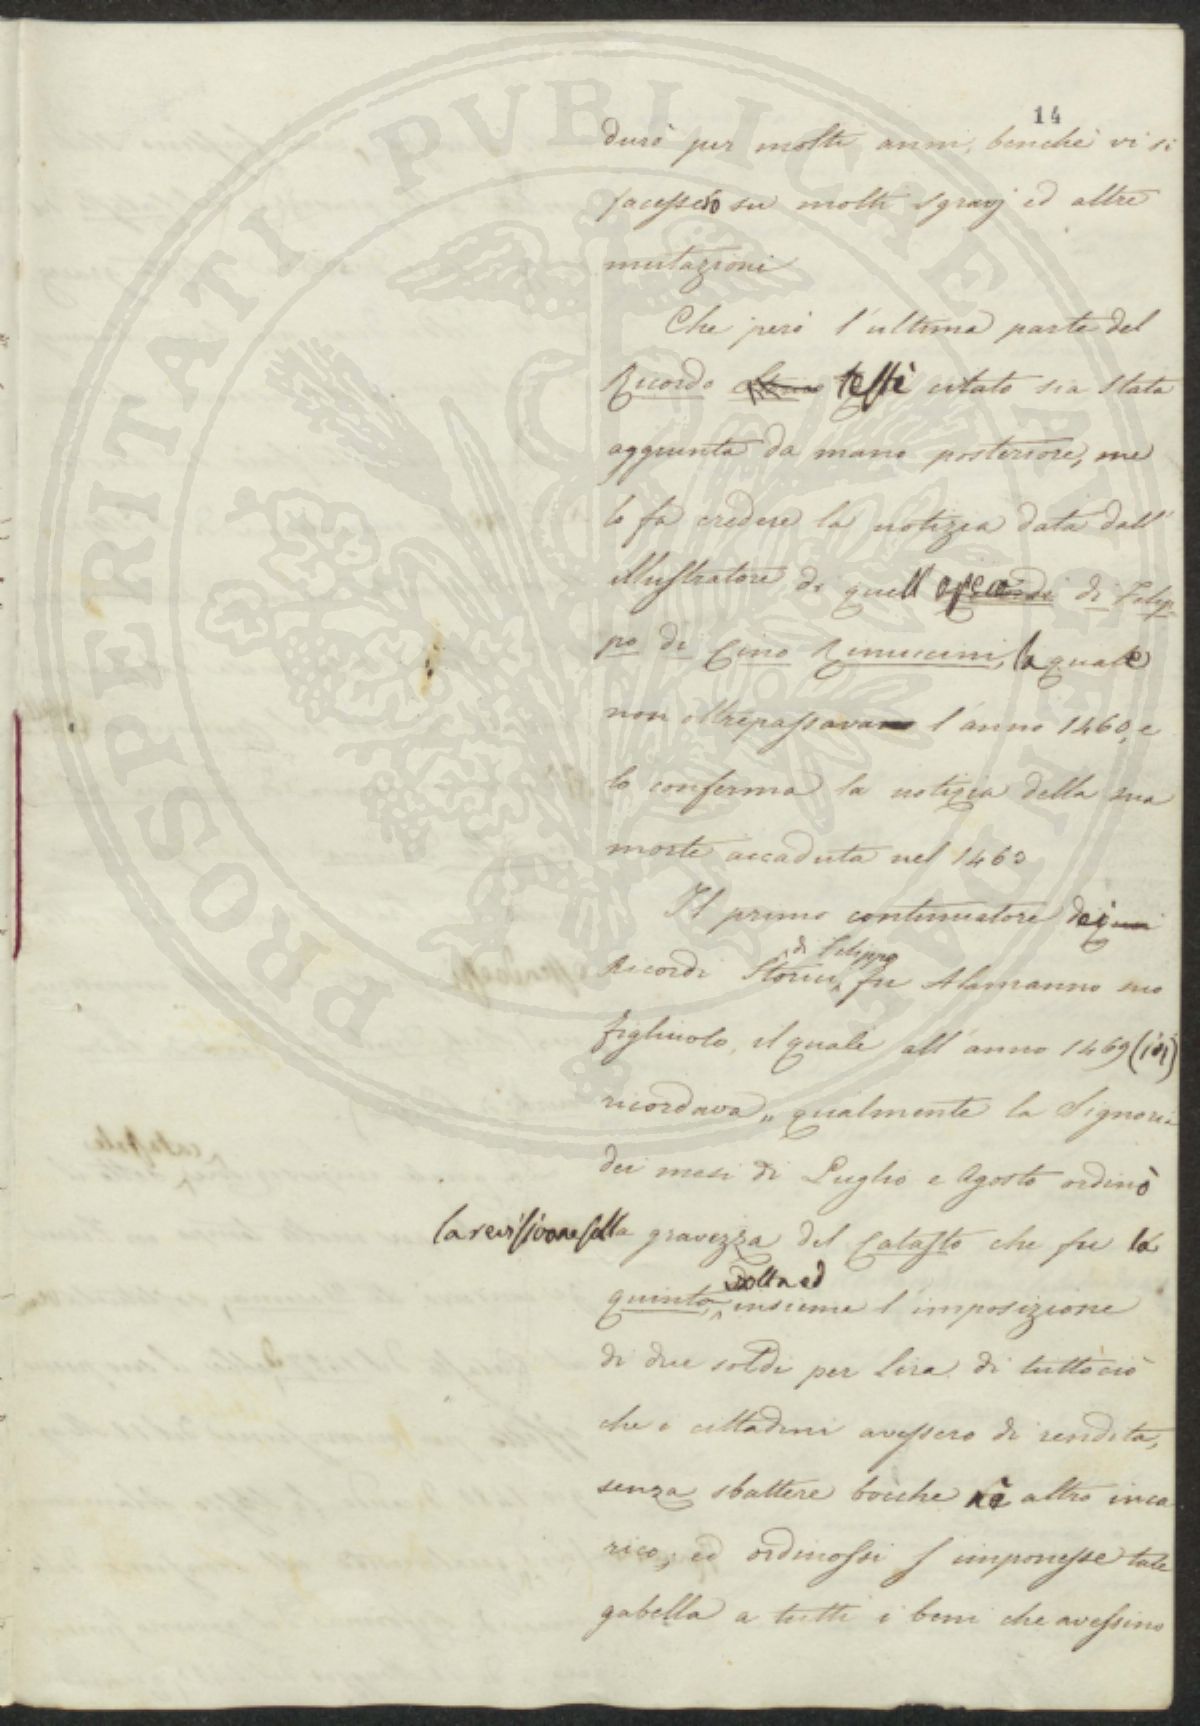 14
durò per molti anni, benchè vi si
facessero su molti sgravj ed altre
mutazioni
Che però l'ultima parte del
Ricordo testè citato sia stata
aggiunta da mano posteriore, me
lo fà credere la notizia data dall'
illustratore di quell' di Filip-
po di Cino Rinuccini, la quale
non oltrepassava l'anno 1460, e
lo conferma la notizia della sua
morte accaduta nel 1462
Il primo continuatore dei
Ricordi Storici di Filippo fu Alamanno suo
figliuolo, il quale all' anno 1469 (ivi)
ricordava „ qualmente la Signoria
dei mesi di Luglio e Agosto ordinò
la revisione della gravezza del Catasto che fu la
quinta, volta ed insieme l'imposizione
di due soldi per lira di tuttociò
che i cittadini avessero di rendita,
senza sbattere bocche nè altro inca
rico, ed ordinossi s' imponesse tale
gabella a tutti i beni che avessino
PROSPERITATI PVBLICAE AVGENDAE